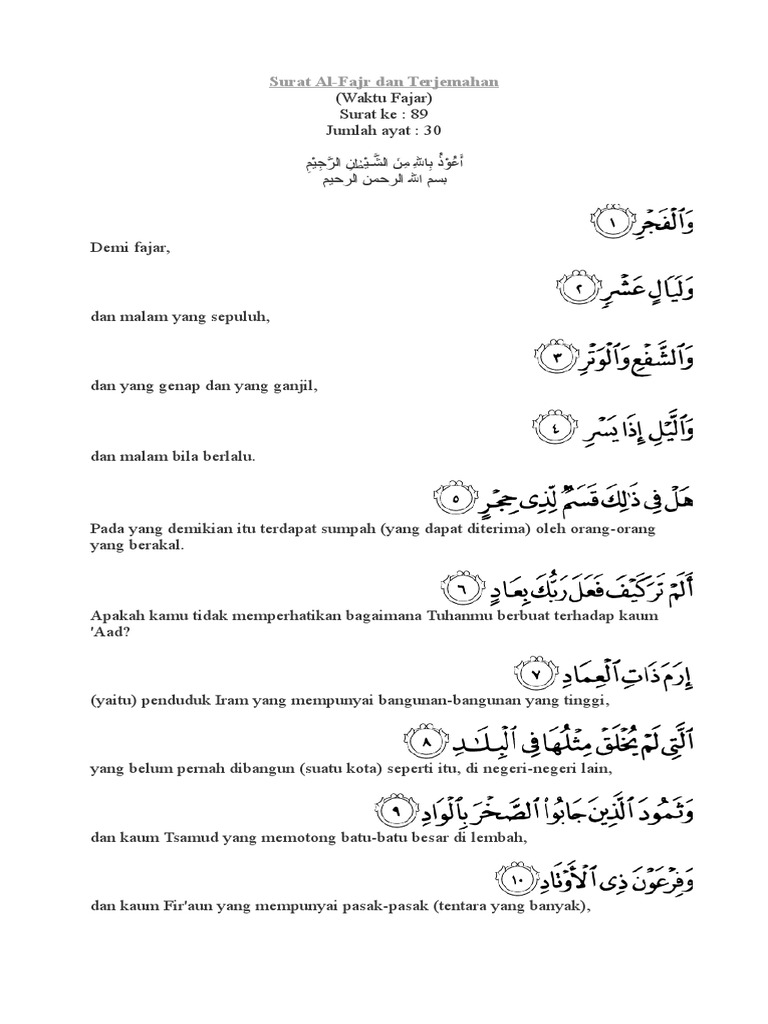 Surat Al-Fajr dan Terjemahan
(Waktu Fajar)
Surat ke : 89
Jumlah ayat : 30
أَعُوْذُ بِاللهِ مِنَ الشَّيْطَانِ الرَّجِيْمِ
بسم الله الرحمن الرحيم
وَٱلْفَجْرِ ١
Demi fajar,
وَلَيَالٍ عَشْرٍ ٢
dan malam yang sepuluh,
وَٱلشَّفْعِ وَٱلْوَتْرِ ٣
dan yang genap dan yang ganjil,
وَٱلَّيْلِ إِذَا يَسْرِ ٤
dan malam bila berlalu.
هَلْ فِى ذَٰلِكَ قَسَمٌ لِّذِى حِجْرٍ ٥
Pada yang demikian itu terdapat sumpah (yang dapat diterima) oleh orang-orang
yang berakal.
أَلَمْ تَرَ كَيْفَ فَعَلَ رَبُّكَ بِعَادٍ ٦
Apakah kamu tidak memperhatikan bagaimana Tuhanmu berbuat terhadap kaum
'Aad?
إِرَمَ ذَاتِ ٱلْعِمَادِ ٧
(yaitu) penduduk Iram yang mempunyai bangunan-bangunan yang tinggi,
ٱلَّتِى لَمْ يُخْلَقْ مِثْلُهَا فِى ٱلْبِلَٰدِ ٨
yang belum pernah dibangun (suatu kota) seperti itu, di negeri-negeri lain,
وَثَمُودَ ٱلَّذِينَ جَابُوا۟ ٱلصَّخْرَ بِٱلْوَادِ ٩
dan kaum Tsamud yang memotong batu-batu besar di lembah,
وَفِرْعَوْنَ ذِى ٱلْأَوْتَادِ ١٠
dan kaum Fir'aun yang mempunyai pasak-pasak (tentara yang banyak),